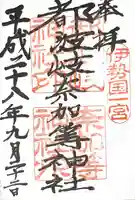 伊勢国一宮
奉拝
都波岐奈加等神社
平成二十八年九月二十二日